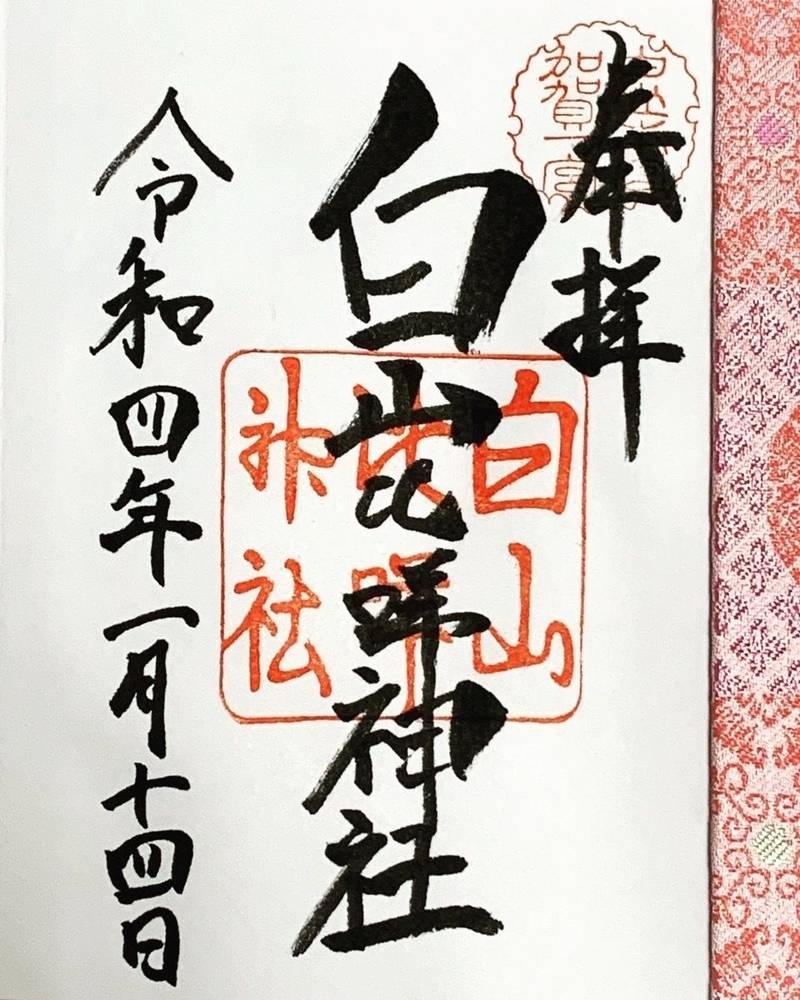 奉拝
白山比咩神社
令和四年一月十四日
白山
比咩
神社
加賀一宮